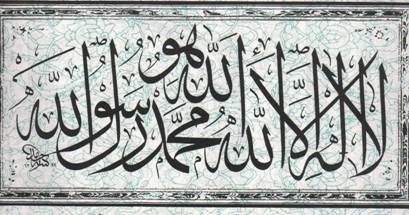 لا إله إلا الله هو الله محمد رسول الله